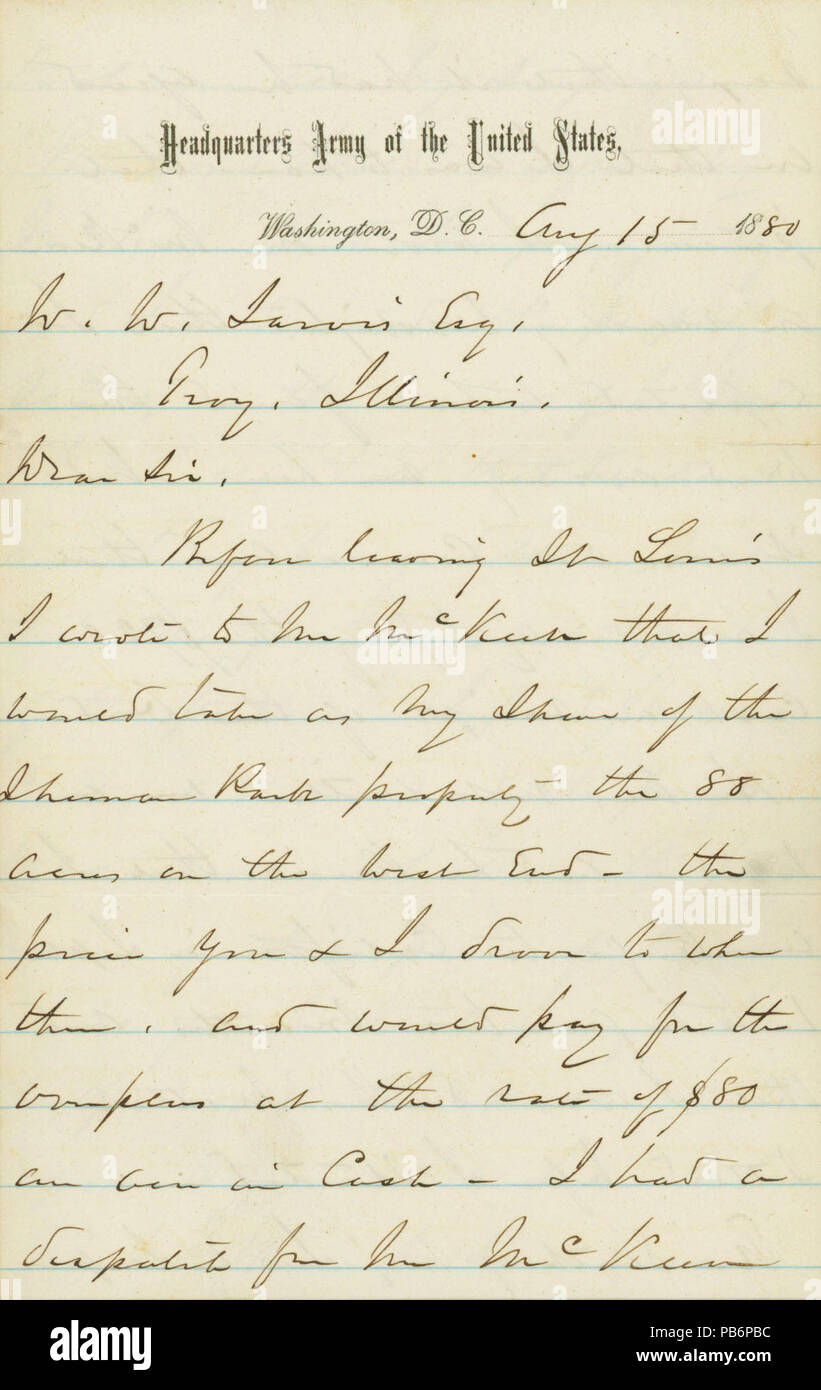 Headquarters Army of the United States,
Washington, D.C. Aug 15 1880
W. W. Jarvis Esq,
Troy, Illinois.
Dear Sir,
Before leaving St Louis
I wrote to Mr McKee that I
would take as my Share of the
Sherman Park property the 88
acres on the West End - the
piece you & I drove to when
there. and would pay for the
overplus at the rate of $80
an acre in Cash - I had a
despatch fr Mr McKee
alamy
alamy
Image ID: PB6PBC
www.alamy.com